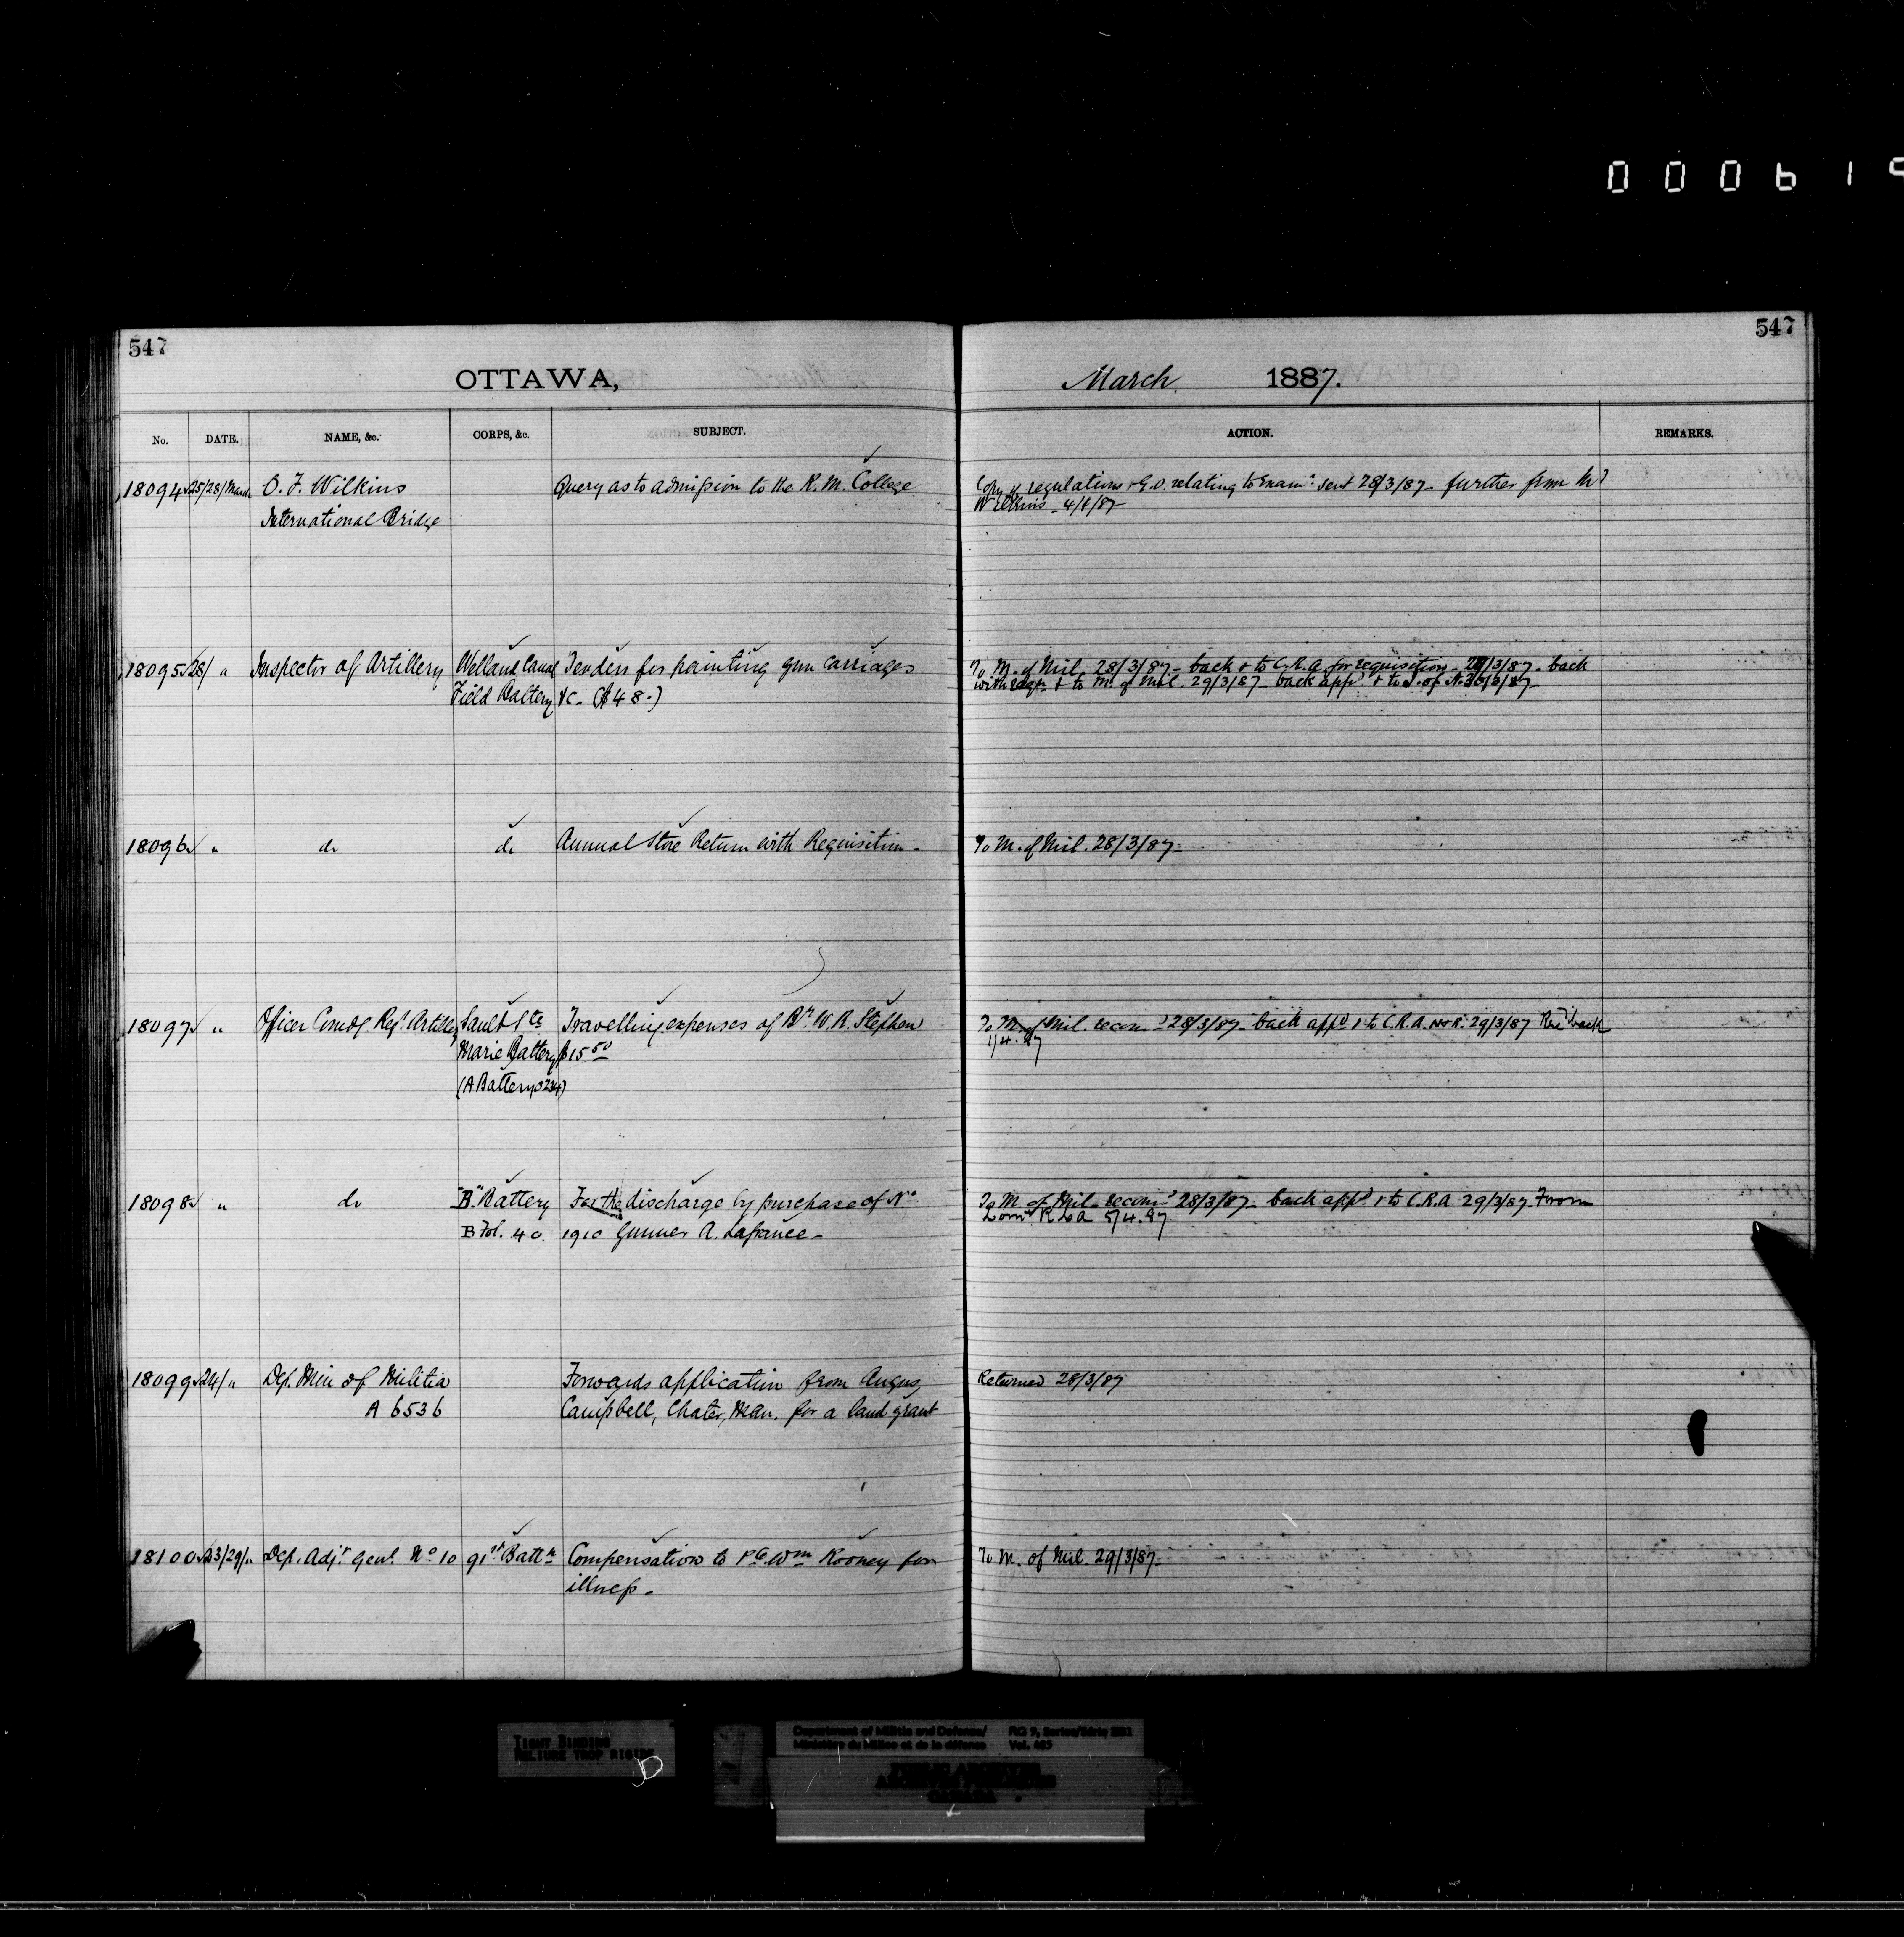 000619
547
547
OTTAWA,
March 1887.
No. DATE. NAME, &c. CORPS, &c. SUBJECT. ACTION. REMARKS.
18094 25/28/March O. F. Wilkins Query as to admission to the R. M. College Copy of regulations & G.O. relating to Exam:n sent 28/3/87 – further from Mr
International Bridge Wilkins – 4/4/87 –
18095 28/ " Inspector of Artillery Welland Canal Tenders for painting gun carriages To M. of Mil. 28/3/87 – back & to C.R.A. for requisition – 28/3/87 . back
Field Battery &c – ($48.) with reqn. & to M. of Mil. 29/3/87 – back appd. & to D. of S. 30/3/87 –
18096 " do do Annual Store Return with Requisition – To M. of Mil. 28/3/87 –
18097 " Officer Comdg. Regt. Artillery Sault Ste Travelling expenses of Br. W. R. Stephen To M. of Mil. recomd 28/3/87 – back appd & to C.R.A. 29/3/87 Recd back
Marie Battery $15.50 1/4.87
(A Battery 0234)
18098 " do "B" Battery For the discharge by purchase of No To M. of Mil – recomd 28/3/87 – back appd & to C.R.A 29/3/87 – From
B Fol. 40. 1910 Gunner A. Lafrance – 5/4.87
18099 24/ " Dep. Min of Militia Forwards application from Angus Returned 28/3/87
A 6536 Campbell, Chater, Man. for a land grant
18100 23/29/ " Dep. Adjt. Genl. No 10 91st Battn Compensation to Pte Wm Rooney for To M. of Mil. 29/3/87 –
illness –
TIGHT BINDING
RELIURE TROP RIGIDE
Department of Militia and Defence/ RG 9, Series/Série
Ministère du Milice et de la défense Vol.
PUBLIC ARCHIVES
ARCHIVES PUBLIQUES
CANADA